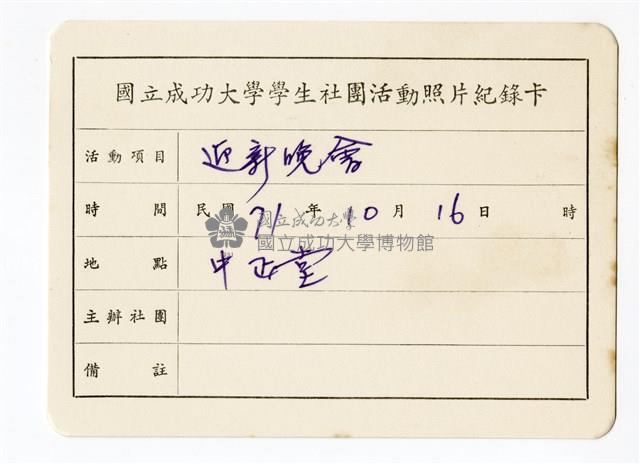 國立成功大學學生社團活動照片紀錄卡
活動項目 迎新晚會
時間 民國 71 年 10 月 16 日 時
國立成功大學
國立成功大學博物館
地點 中正堂
主辦社團
備註